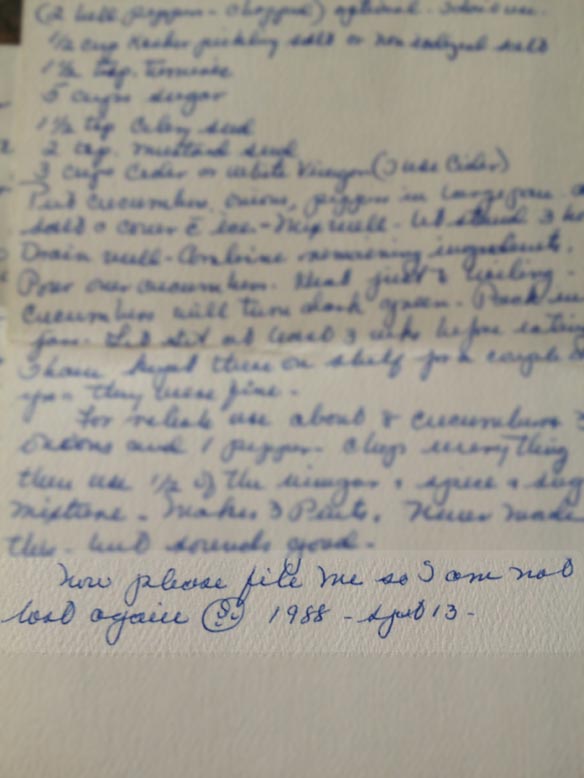 (2 bell peppers - chopped) optional -
1/2 cup Kosher pickling salt or non iodized salt
1 1/2 tsp. Turmeric
5 cups sugar
1 1/2 tsp Celery seed
2 tsp. mustard seed
3 cups Cider or white Vinegar (I use Cider)
Put cucumbers, onions, peppers in large pan.
salt & cover c̄ ice - Mix well - let stand 3
Drain well - Combine remaining ingredients.
Pour over cucumbers. Heat just to boiling -
Cucumbers will turn dark green - Pack
jars. Let set at least 3 wks before
I have kept these on shelf for a couple
yrs they were fine -
For relish use about 8 cucumbers 3
onions and 1 pepper - chop everything
then use 1/2 of the vinegar & spice & sug
mixture - Makes 3 Pints. Never made
this - but sounds good -
Now please file me so I am not
lost again 1988 - April 13 -